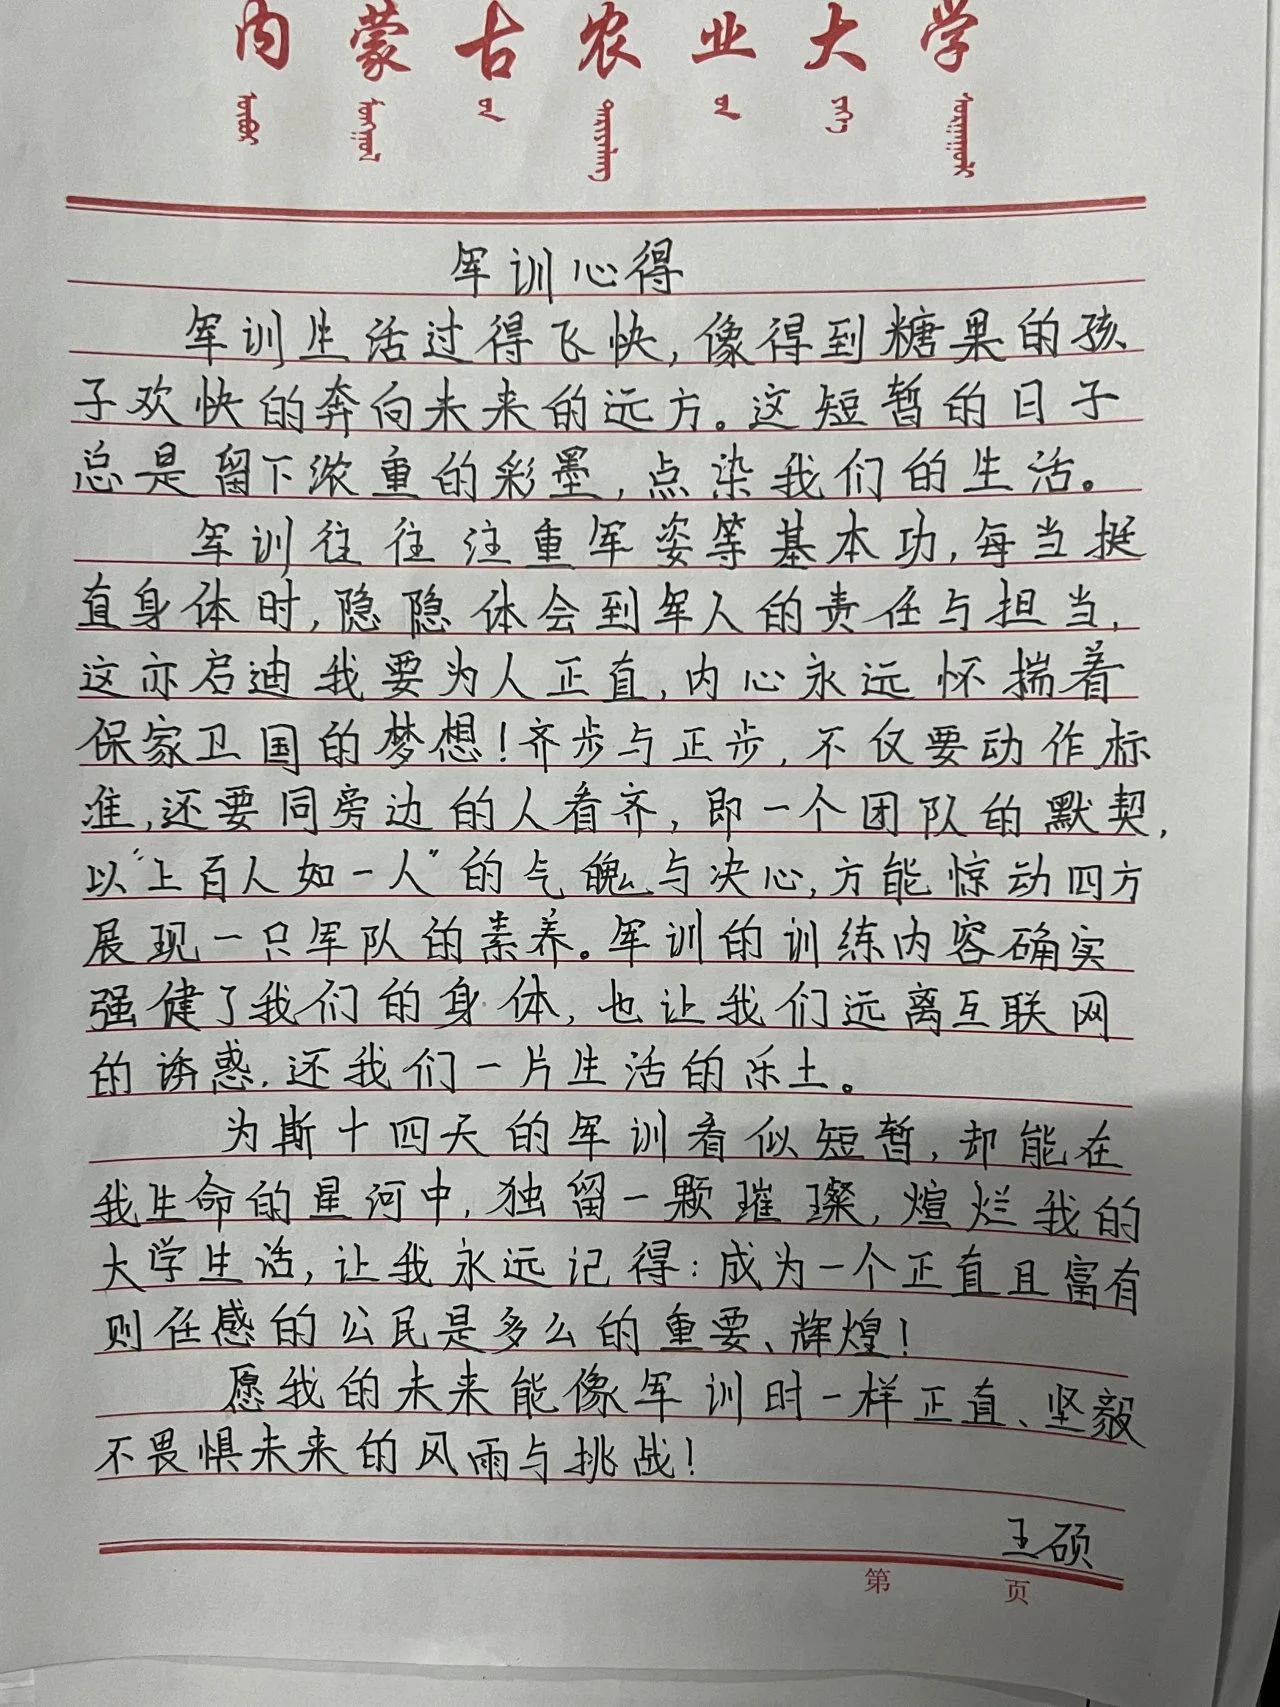 内蒙古农业大学
军训心得
军训生活过得飞快,像得到糖果的孩
子欢快的奔向未来的远方。这短暂的日子
总是留下浓重的彩墨,点染我们的生活。
军训往往注重军姿等基本功,每当挺
直身体时,隐隐体会到军人的责任与担当,
这亦启迪我要为人正直,内心永远怀揣着
保家卫国的梦想!齐步与正步,不仅要动作标
准,还要同旁边的人看齐,即一个团队的默契,
以“上百人如一人”的气魄与决心,方能惊动四方
展现一只军队的素养。军训的训练内容确实
强健了我们的身体,也让我们远离互联网
的诱惑.还我们一片生活的乐土。
为斯十四天的军训看似短暂,却能在
我生命的星河中,独留一颗璀璨,煊烂我的
大学生活,让我永远记得:成为一个正直且富有
则任感的公民是多么的重要、辉煌!
愿我的未来能像军训时一样正直、坚毅
不畏惧未来的风雨与挑战!
王硕
第 页